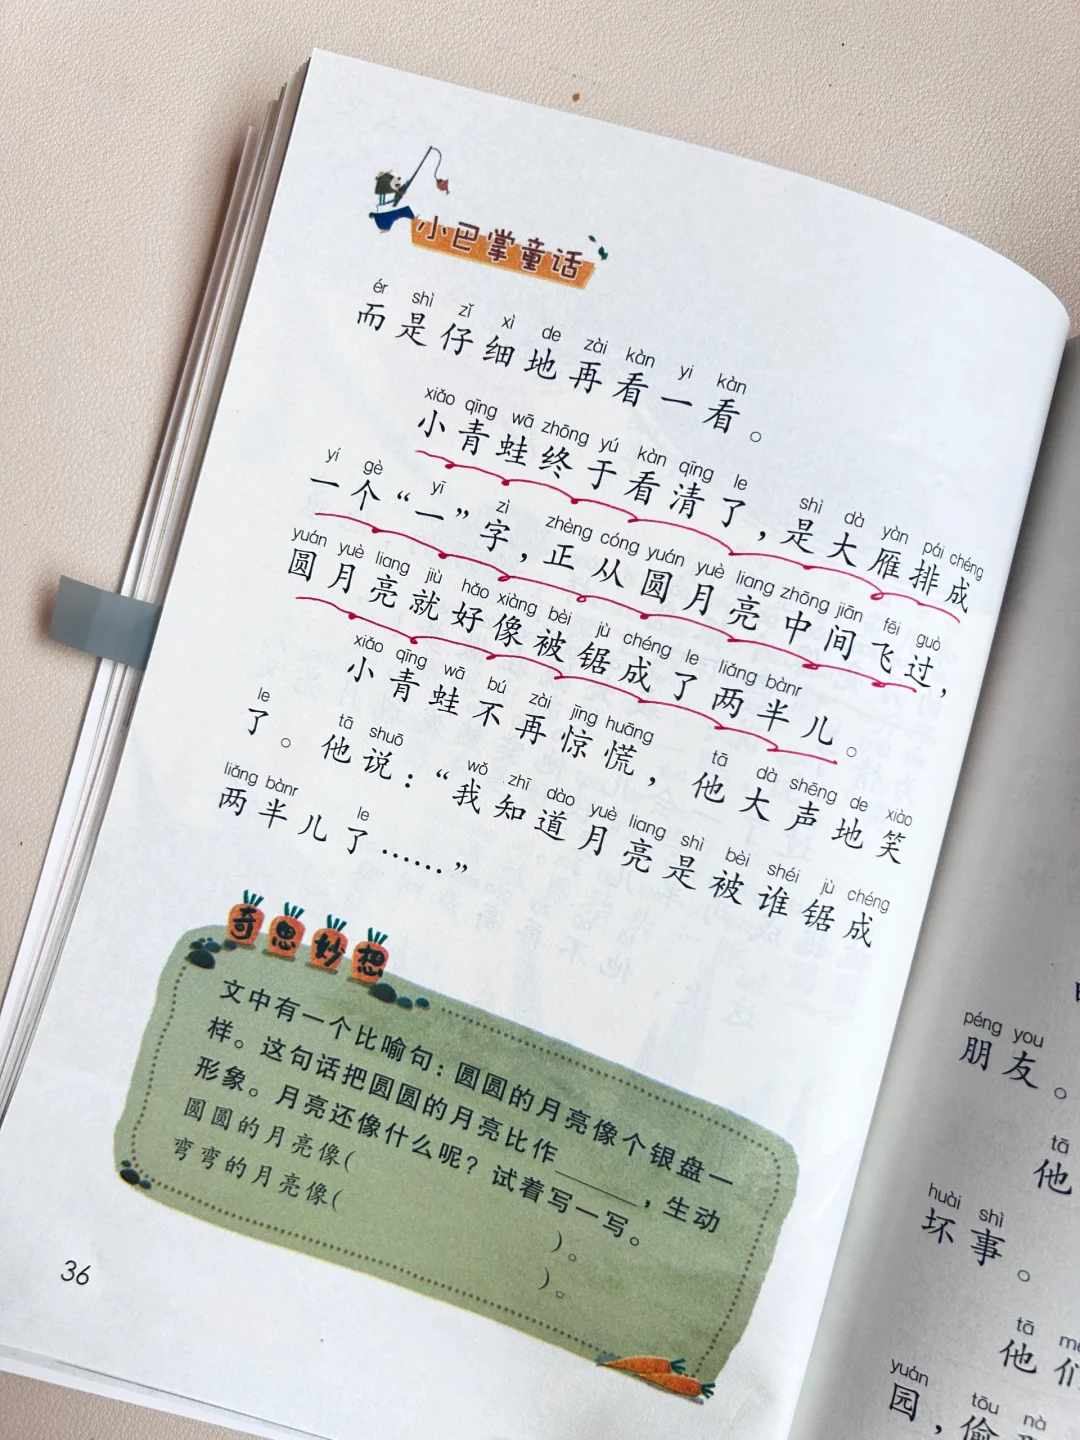 小巴掌童话
ér shì zǐ xì de zài kàn yi kàn
而是仔细地再看一看。
xiǎo qīng wā zhōng yú kàn qīng le shì dà yàn pái chéng
小青蛙终于看清了，是大雁排成
yí gè yī zì zhèng cóng yuán yuè liang zhōng jiān fēi guò
一个“一”字，正从圆月亮中间飞过，
yuán yuè liang jiù hǎo xiàng bèi jù chéng le liǎng bànr
圆月亮就好像被锯成了两半儿。
xiǎo qīng wā bú zài jīng huāng tā dà shēng de xiào
小青蛙不再惊慌，他大声地笑
le tā shuō wǒ zhī dào yuè liang shì bèi shéi jù chéng
了。他说：“我知道月亮是被谁锯成
liǎng bànr le
两半儿了……”
奇思妙想
文中有一个比喻句：圆圆的月亮像个银盘一
样。这句话把圆圆的月亮比作______，生动
形象。月亮还像什么呢？试着写一写。
圆圆的月亮像( )。
弯弯的月亮像( )。
36
péng you
朋友。
tā
他
huài shì
坏事。
tā
他们
yuán tōu nà
园，偷